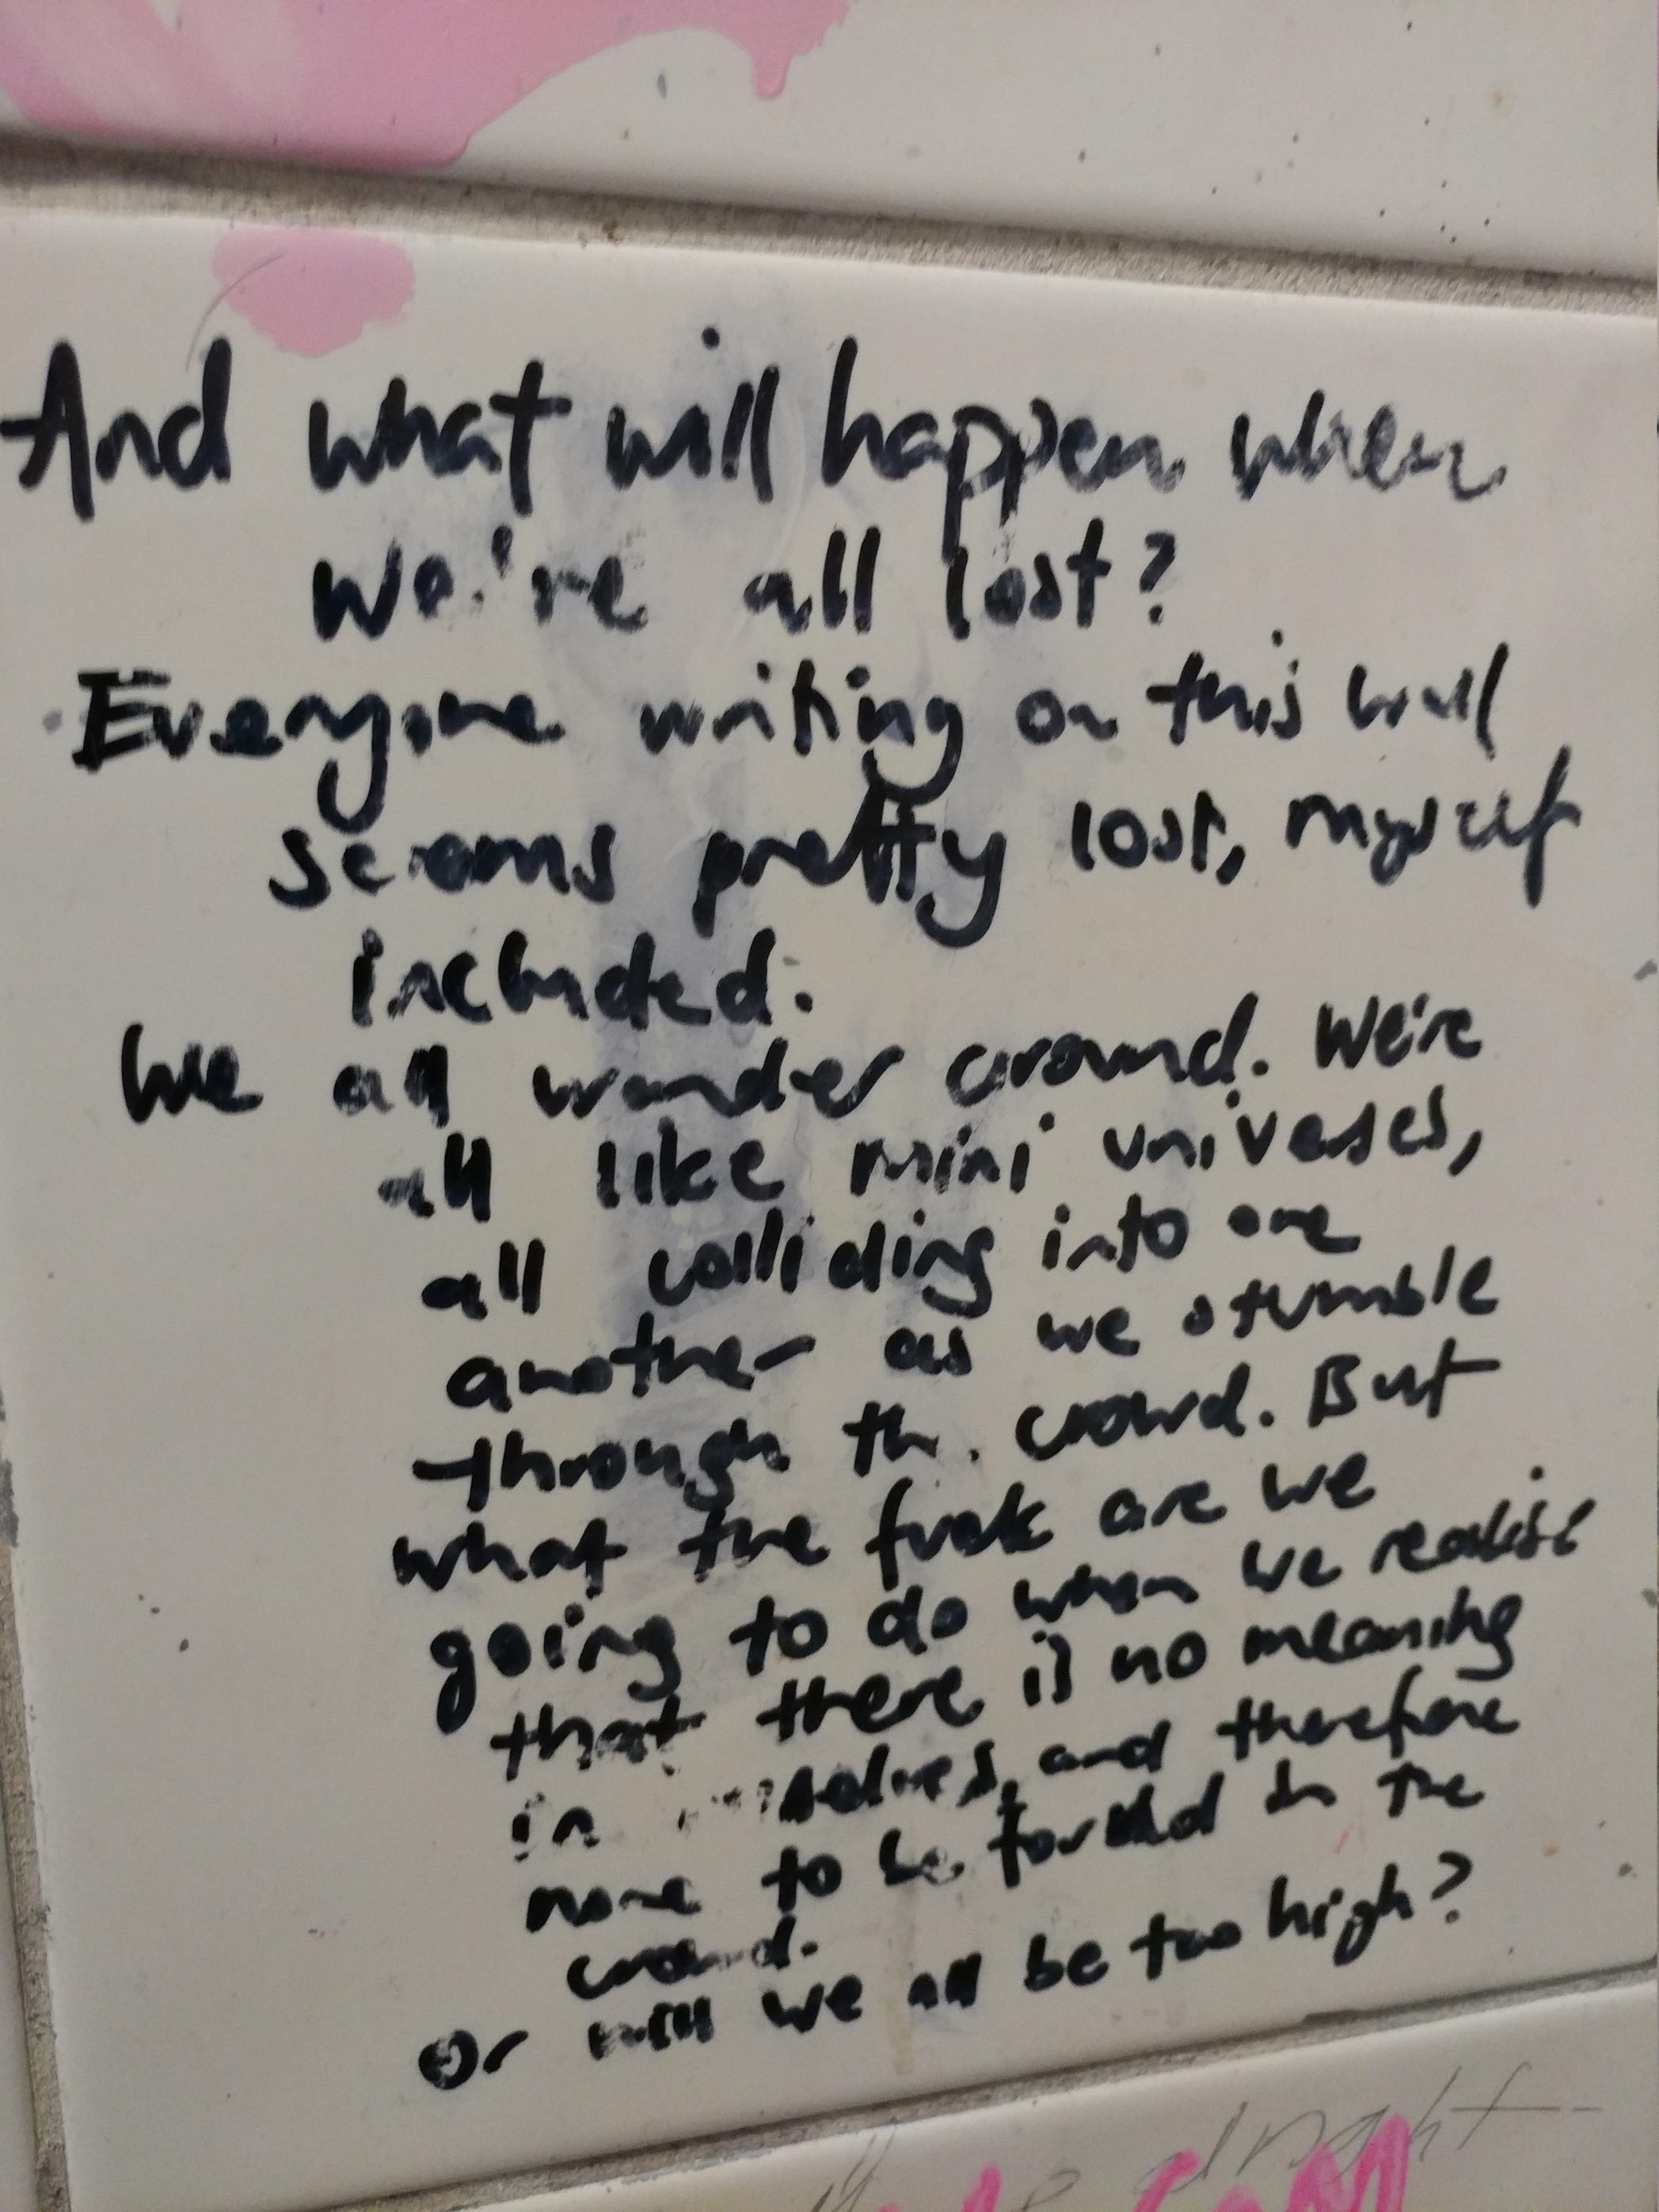 And what will happen when
we're all lost?
Everyone writing on this wall
seems pretty lost, myself
included.
We all wander around. We're
all like mini universes,
all colliding into one
another as we stumble
through the crowd. But
what the fuck are we
going to do when we realise
that there is no meaning
in and therefore
none to be found in the
crowd.
Or will we all be too high?